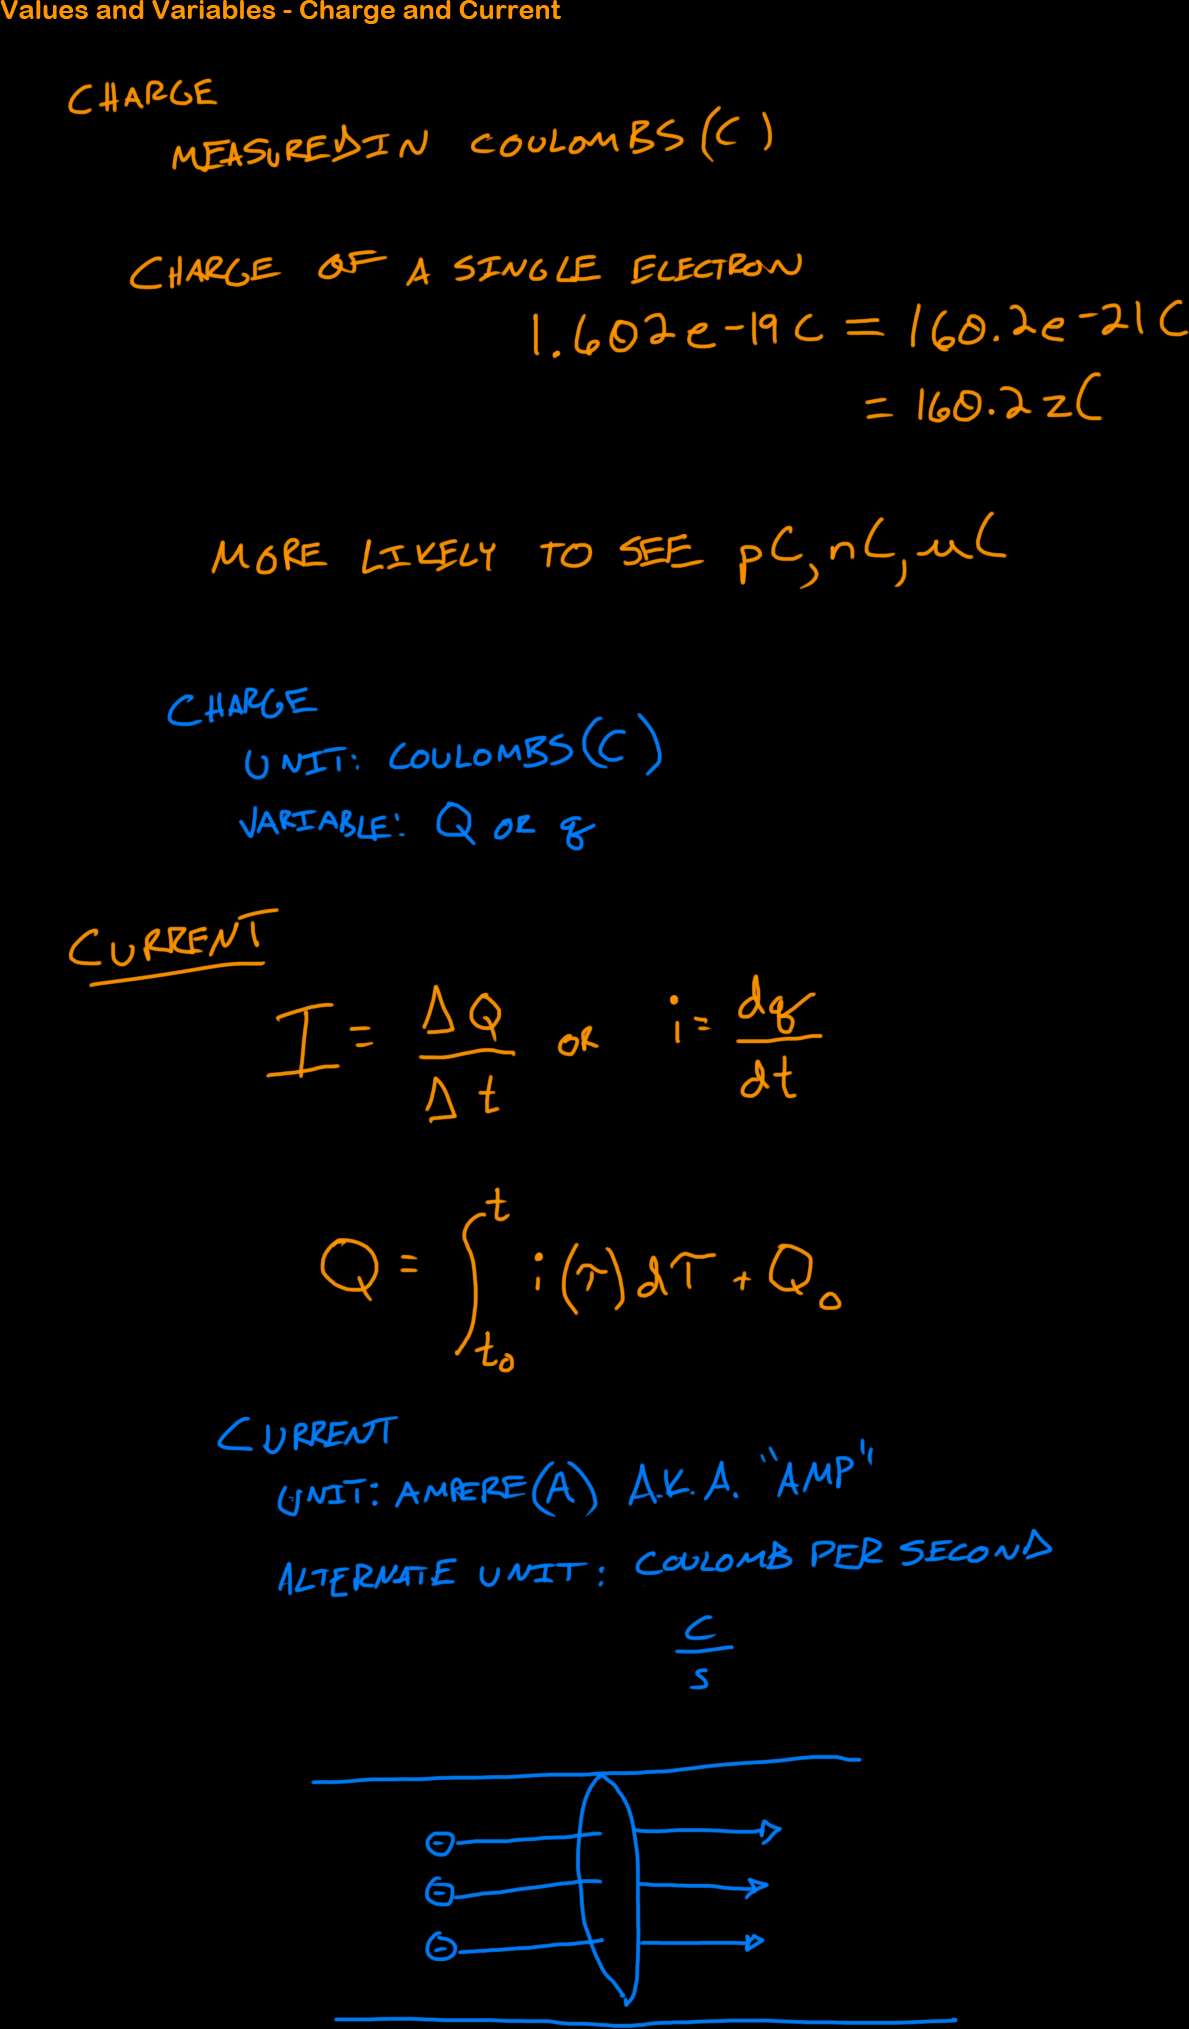 Values and Variables - Charge and Current
CHARGE
MEASURED IN COULOMBS (C)
CHARGE OF A SINGLE ELECTRON
1.602e-19 C = 160.2e-21 C
= 160.2 zC
MORE LIKELY TO SEE pC, nC, uC
CHARGE
UNIT: COULOMBS (C)
VARIABLE: Q OR q
CURRENT
I = ΔQ/Δt OR i = dq/dt
Q = ∫_{t₀}^{t} i(τ) dτ + Q₀
CURRENT
UNIT: AMPERE (A) A.K.A. "AMP"
ALTERNATE UNIT: COULOMB PER SECOND
C/s
-
-
-